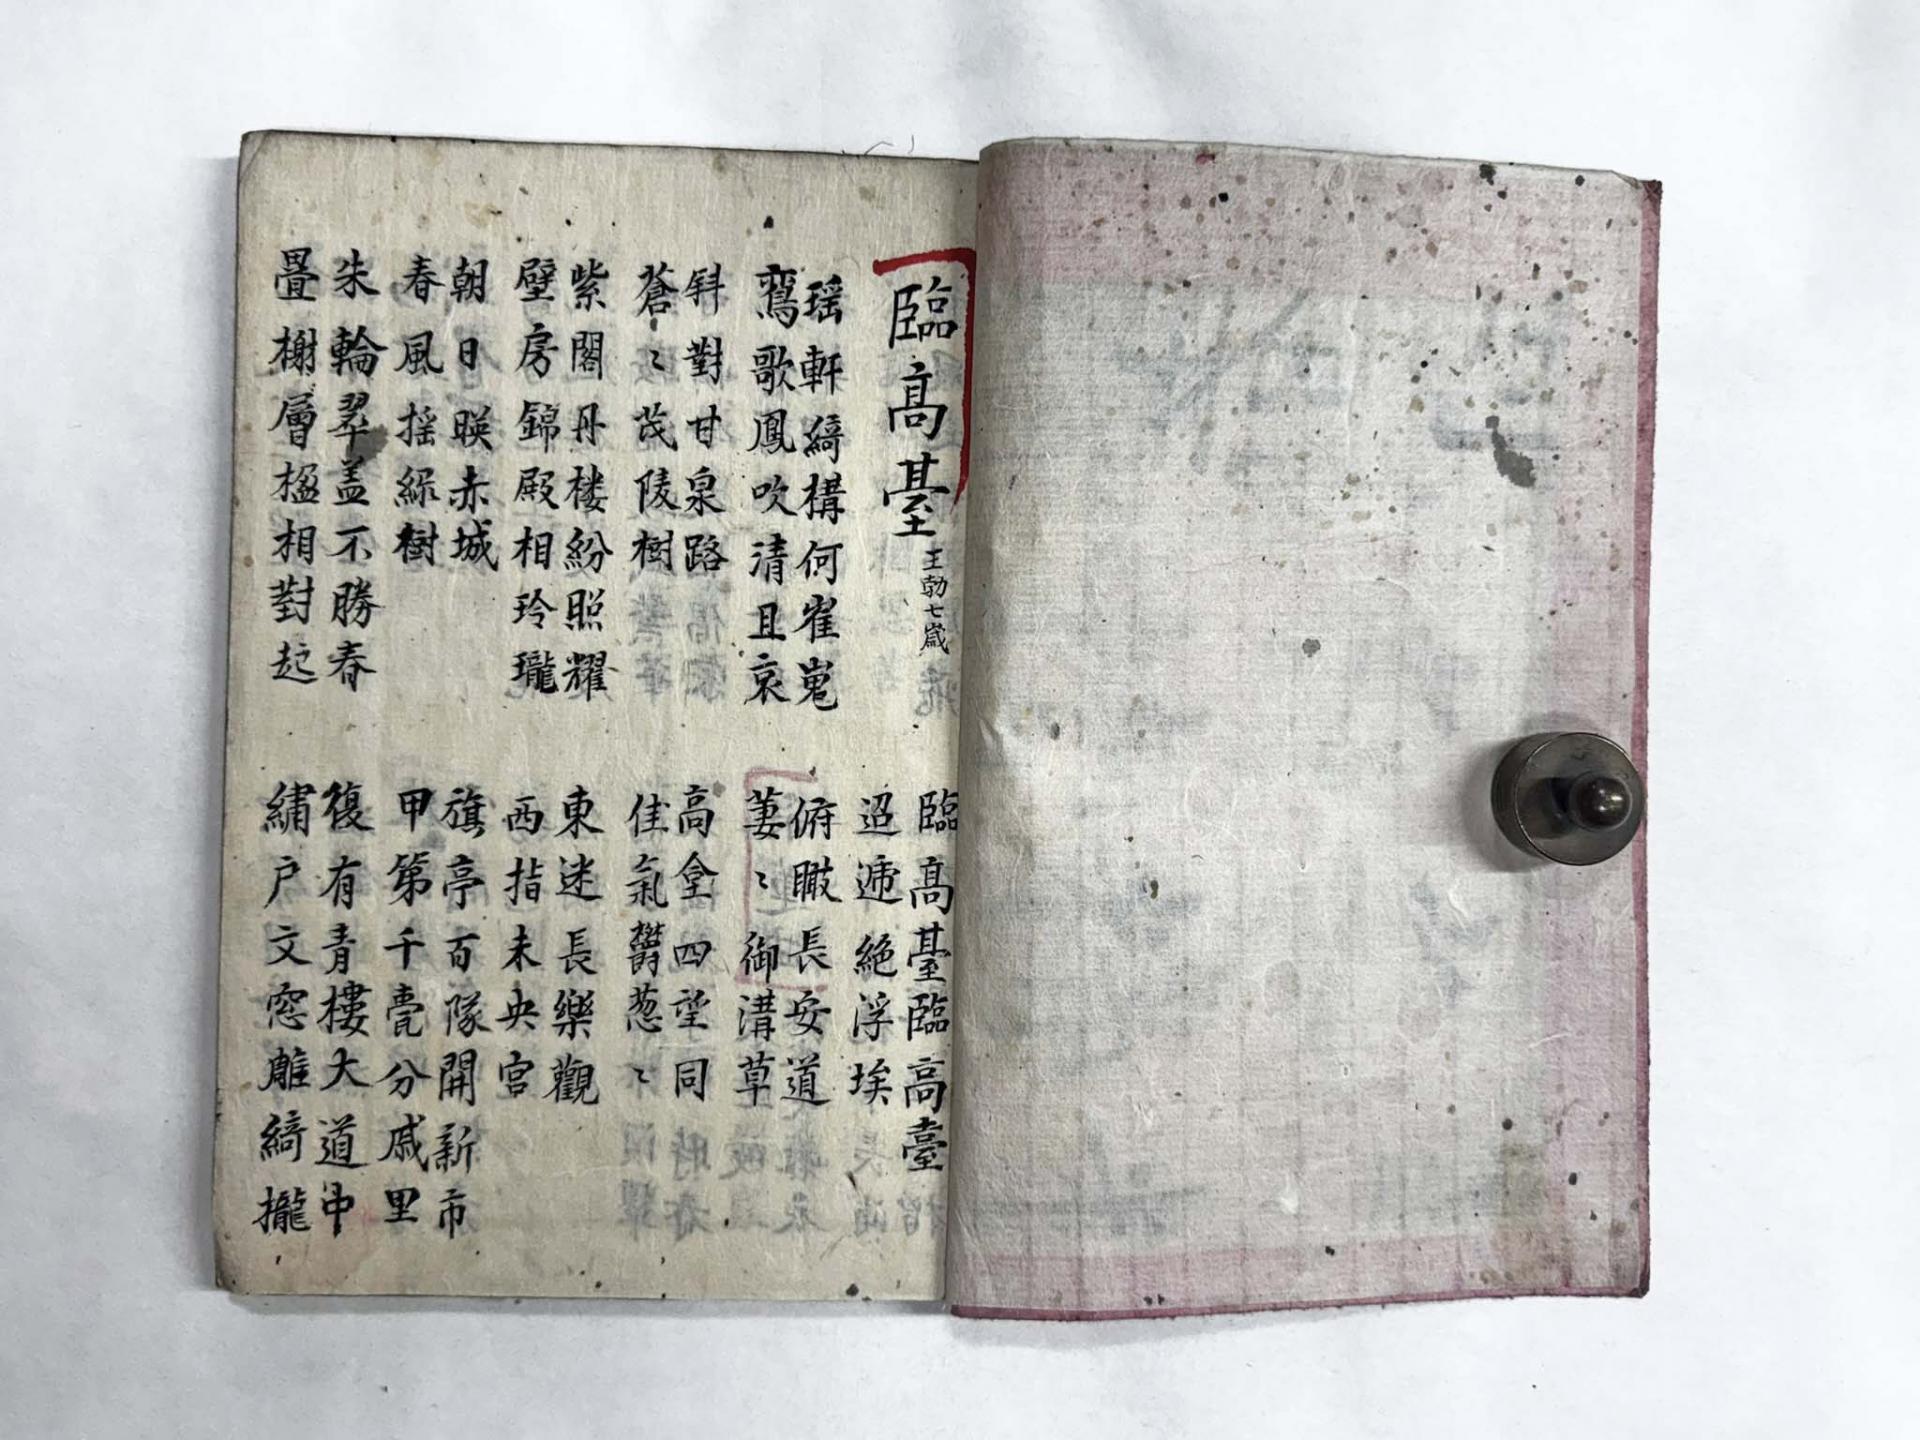 臨高臺
王勃七歲
臨高臺臨高臺
迢遞絕浮埃
瑶軒綺構何崔嵬
鸞歌鳳吹清且哀
俯瞰長安道
萋〻御溝草
斜對甘泉路
蒼〻茂陵樹
高堂四望同
佳氣欝葱〻
紫閣丹楼紛照耀
壁房錦殿相玲瓏
東迷長樂觀
西指未央宮
朝日映赤城
春風摇綠樹
旗亭百隊開新市
甲第千甍分戚里
朱輪翠盖不勝春
疊榭層楹相對起
復有青樓大道中
繡户文窓雕綺櫳